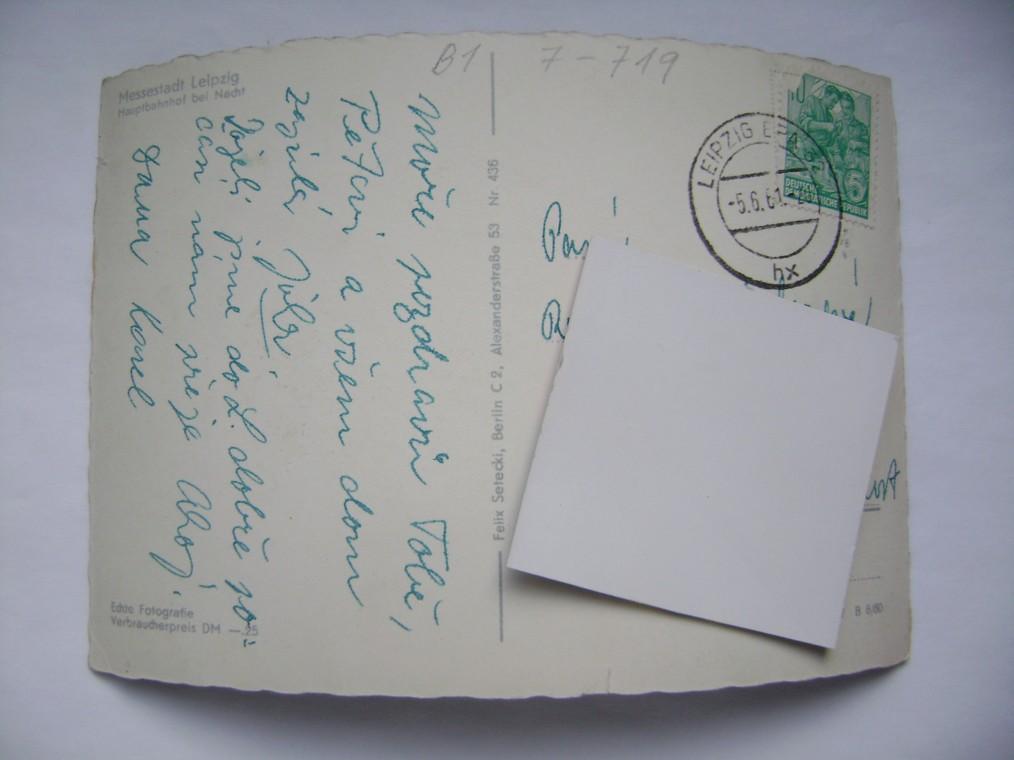 Messestadt Leipzig
Hauptbahnhof bei Nacht
B1
7-719
Moře pozdravů Tobě,
Petrovi a všem doma
zasílá Jula
Dojeli jsme do L. dobře, po-
časí nám přeje. Ahoj!
Dáma Karel
Felix Setecki, Berlin C 2, Alexanderstraße 53 Nr. 436
Echte Fotografie
Verbraucherpreis DM —.25
LEIPZIG
-5.6.61.
hx
DEUTSCHE
DEMOKRATISCHE REPUBLIK
B 6/60